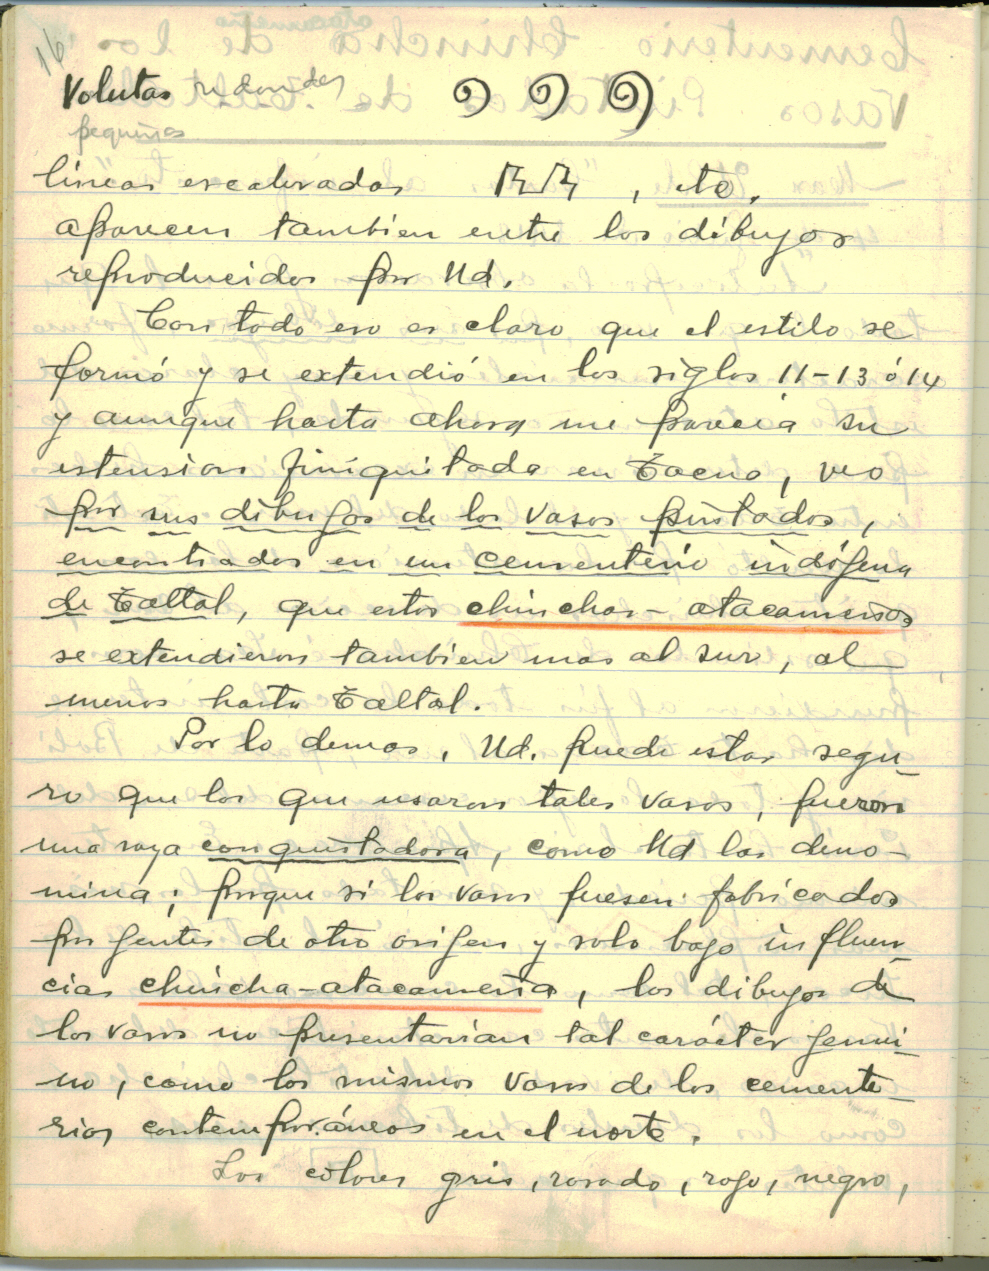 16
Volutas redondas
pequeñas
líneas escaleradas , etc.
aparecen tambien entre los dibujos
reproducidos por Ud.
Con todo eso es claro, que el estilo se
formó y se extendió en los siglos 11-13 ó 14
y aunque hasta ahora me parecia su
estension finiquitada en Tacna, veo
por sus dibujos de los vasos pintados,
encontrados en un cementerio indígena
de Taltal, que estos chinchas-atacameños
se extendieron tambien mas al sur, al
menos hasta Taltal.
Por lo demas, Ud. puede estar segu-
ro que los que usaron tales vasos, fueron
una raza conquistadora, como Ud las deno-
mina; porque si los vasos fuesen fabricados
por gentes de otro origen y solo bajo influen-
cias chincha-atacameña, los dibujos de
los vasos no presentarian tal carácter genui-
no, como los mismos vasos de los cemente-
rios contemporáneos en el norte.
Los colores gris, rosado, rojo, negro,